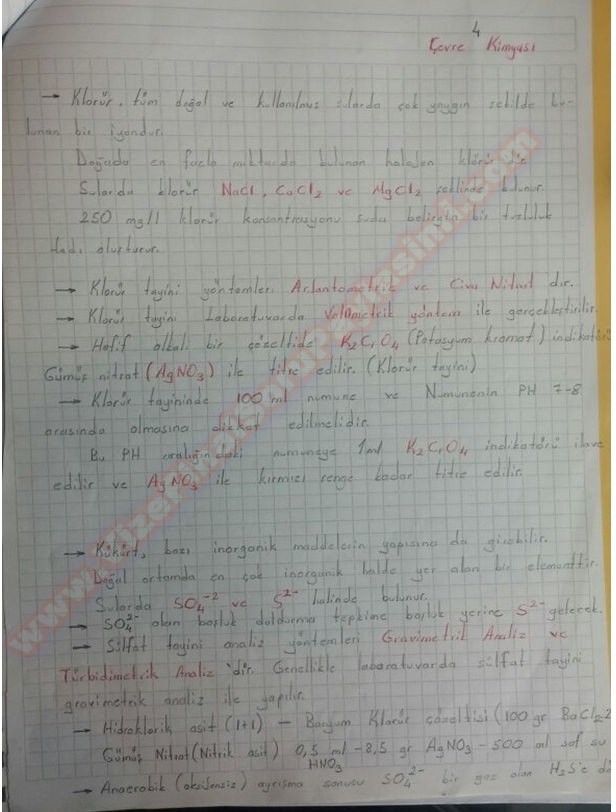 4
Çevre Kimyası
→ Klorür, tüm doğal ve kullanılmış sularda çok yaygın şekilde bu-
lunan bir iyondur.
Doğada en fazla miktarda bulunan halojen klorür'dür.
Sularda klorür NaCl, CaCl2 ve MgCl2 şeklinde bulunur.
250 mg/l klorür konsantrasyonu suda belirgin bir tuzluluk
tadı oluşturur.
→ Klorür tayini yöntemleri Arjantometrik ve Civa Nitrat dır.
→ Klorür tayini Laboratuvarda Volümetrik yöntem ile gerçekleştirilir.
→ Hafif alkali bir çözeltide K2CrO4 (Potasyum kromat) indikatörü
Gümüş nitrat (AgNO3) ile titre edilir. (Klorür tayini)
→ Klorür tayininde 100 ml numune ve Numunenin PH 7-8
arasında olmasına dikkat edilmelidir.
Bu PH aralığındaki numuneye 1ml K2CrO4 indikatörü ilave
edilir ve AgNO3 ile kırmızı renge kadar titre edilir.
→ Kükürt, bazı inorganik maddelerin yapısına da girebilir.
Doğal ortamda en çok inorganik halde yer alan bir elementtir.
Sularda SO4-2 ve S2- halinde bulunur.
→ SO4 2- olan boşluk doldurma tepkime boşluk yerine S2- gelecek.
→ Sülfat tayini analiz yöntemleri Gravimetrik Analiz ve
Türbidimetrik Analiz 'dir. Genellikle laboratuvarda sülfat tayini
gravimetrik analiz ile yapılır.
→ Hidroklorik asit (1+1) - Baryum Klorür çözeltisi (100 gr BaCl2.2
Gümüş Nitrat (Nitrik asit) 0,5 ml - 8,5 gr AgNO3 - 500 ml saf su
HNO3
→ Anaerobik (oksijensiz) ayrışma sonusu SO4 2- bir gaz olan H2S'e dö